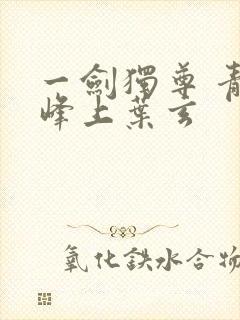 一劍獨尊 青
峰上葉玄
氧化鉄水合物